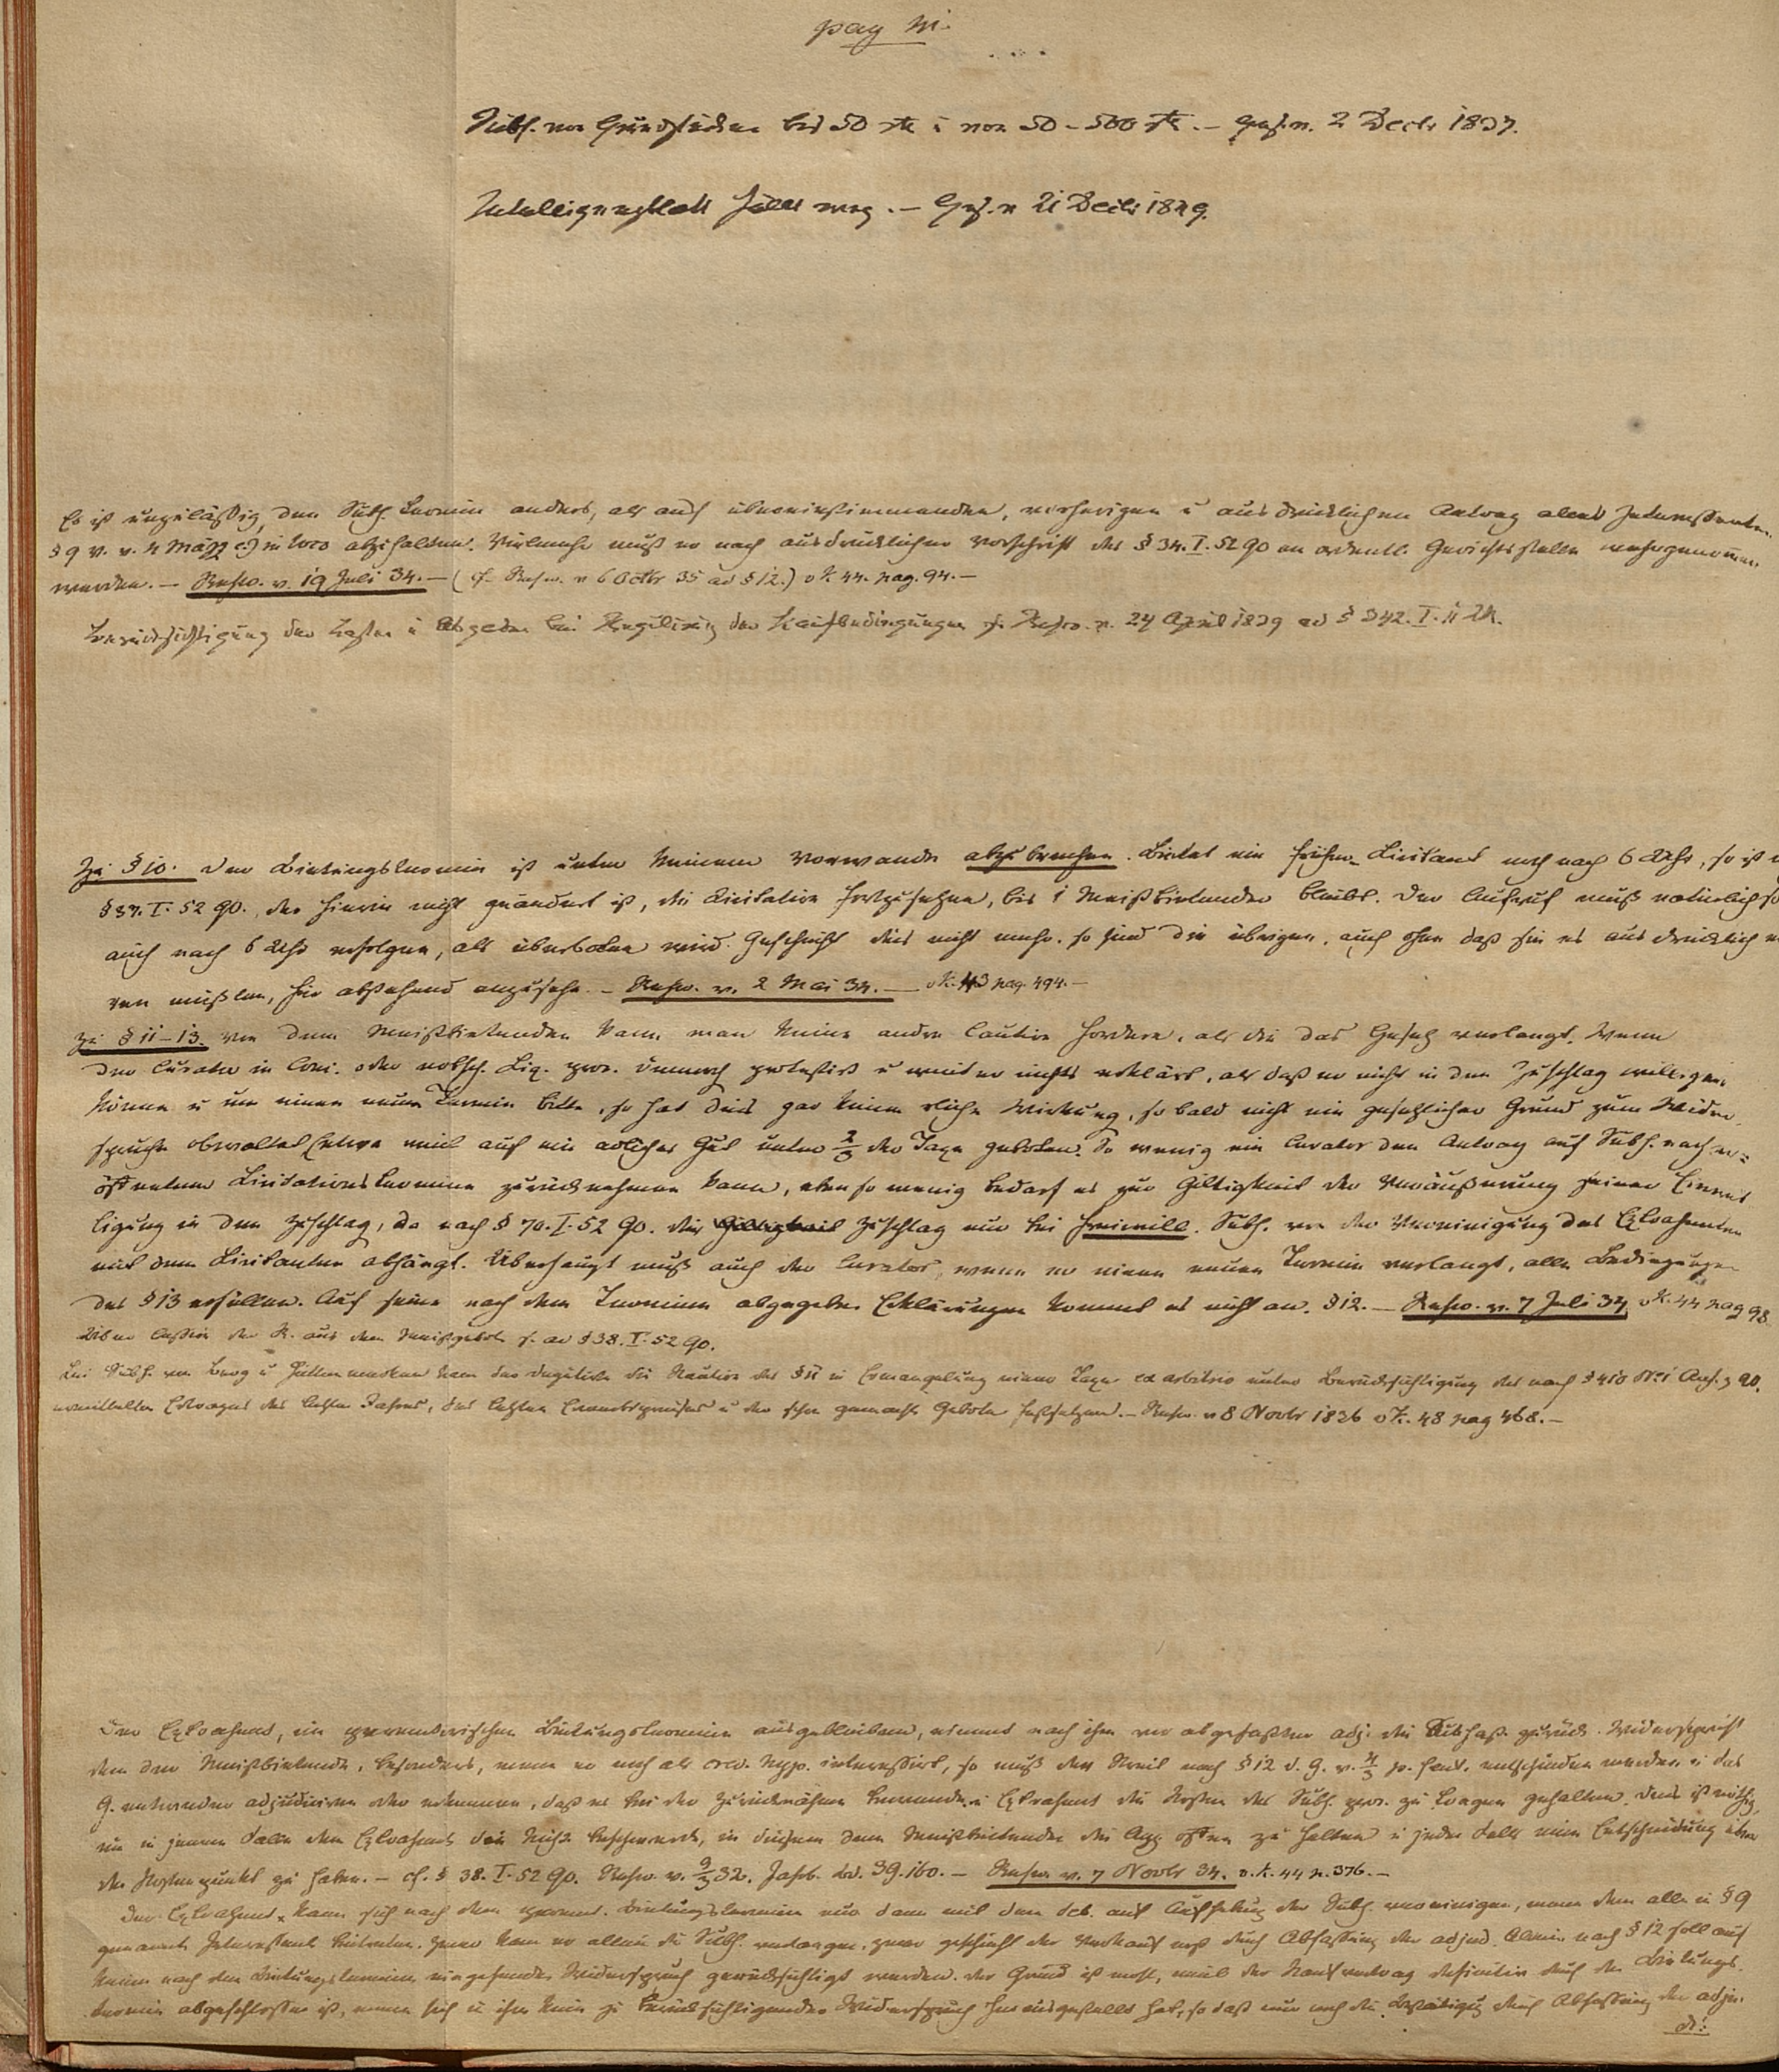 pag 111.
Subh. von Grundstücken bis 50 rth u von 50 - 500 rth. — Ges. v. 2 Decbr 1837.
Intelligenzblatt fällt weg. — Ges. v 21 Decbr 1849.
Es ist unzuläßig, den Subh. Termin anders, als auf übereinstimmenden, vorherigen u ausdrücklichen Antrag aller Interessenten
§ 9 V. v. 4 März c.) in loco abzuhalten. Vielmehr muß er nach ausdrücklicher Vorschrift des § 34. I. 52 GO an ordentl. Gerichtsstelle wahrgenommen
werden. — Rescr. v. 19 Juli 34. — (cf. Rescr. v 6 Octbr 35 ad § 12.) v K. 44. pag. 94. —
Berücksichtigung der Lasten u Abgaben bei Regulirung der Kaufbedingungen cf. Rescr. v. 24 April 1839 ad § 342. I. 11 LR.
Zu § 10. Der Bietungstermin ist unter keinem Vorwande abzubrechen. Bietet ein früherer Licitant noch nach 6 Uhr, so ist
§ 37. I. 52 GO., der hierin nicht geändert ist, die Licitation fortzusetzen, bis 1 Meistbietender bleibt. Der Aufruf muß natürlich so
auch nach 6 Uhr erfolgen, als überboten wird. Geschieht dies nicht mehr, so sind die übrigen, auch ohne daß sie es ausdrücklich
ren müßten, für abstehend anzusehen. — Rescr. v. 2 Mai 34. — v K. 43 pag. 494. —
Zu § 11–13. Von dem Meistbietenden kann man keine andre Caution fordern, als die das Gesetz verlangt. Wenn
der Curator in Conc. oder erbsch. Liq. proz. dennoch protestirt u weiter nichts erklärt, als daß er nicht in den Zuschlag willigen
könne u um einen neuen Termin bitte, so hat dies gar keine rechtliche Wirkung, so bald nicht ein gesetzlicher Grund zum Wider-
spruche obwaltet (etwa weil auf ein adliches Gut unter 2/3 der Taxe geboten. So wenig ein Curator den Antrag auf Subh. nach er-
öffnetem Licitationstermine zurücknehmen kann, eben so wenig bedarf es zur Giltigkeit der Veräußerung seiner Einwil
ligung in den Zuschlag, da nach § 70. I. 52 GO. der Giltigkeit Zuschlag nur bei freiwill. Subh. von der Vereinigung des Extrahenten
mit dem Licitanten abhängt. Überhaupt muß auch der Curator, wenn er einen neuen Termin verlangt, alle Bedingungen
des § 13 erfüllen. Auf seine nach dem Termine abgegebne Erklärungen kommt es nicht an. § 12. — Rescr. v. 7 Juli 34 v K. 44 pag 98.
Über Cession der K. aus dem Meistgebot s. ad § 38. I. 52 GO.
Bei Subh. von Berg u Hüttenwerken kann der Deputirte die Kaution des § 11 in Ermangelung einer Taxe ex arbitrio unter Berücksichtigung des nach § 410 No 1 Anh. z GO.
ermittelten Ertrages des letzten Jahres, des letzten Erwerbspreises u der schon gemachten Gebote festsetzen. — Rescr. v 8 Novbr 1836 v K. 48 pag 468. —
Der Extrahent, im peremtorischen Bietungstermine ausgeblieben, nimmt nach ihm vor abgefaßter adj. die Subhast. zurück. Widerspricht
dem der Meistbietende, besonders, wenn er noch als cred. hyp. interessirt, so muß der Streit nach § 12 d. G. v. 4/3 p. sent. entschieden werden u das
G. entweder adjudiciren oder erkennen, daß es bei der Zurücknahme bewende u Extrahent die Kosten des Subh. proz. zu tragen gehalten. Dies ist nöthig,
um in jenem Falle dem Extrahent die Nicht. beschwerde, in diesem dem Meistbietenden die App. offen zu halten u jeden Falls eine Entscheidung über
den Kostenpunkt zu haben. — cf. § 38. I. 52 GO. Rescr. v. 9/3 32. Jahrb. Bd. 39. 160. — Rescr v. 7 Novbr 34. v. K. 44 p. 376. —
Der Extrahent kann sich nach dem peremt. Bietungstermin nur dann mit dem deb. auf Aufhebung der Subh. vereinigen, wenn dem alle in § 9
genannte Interessent beitreten. Zwar kann er allein die Subh. verlangen, zwar geschieht der Verkauf erst durch Abfassung der adjud. Allein nach § 12 soll auf
keinen nach dem Bietungstermine eingehenden Widerspruch gerücksichtigt werden. Der Grund ist wohl, weil der Kaufvertrag definitiv durch den Bietungs-
termin abgeschlossen ist, wenn sich in ihm kein zu berücksichtigender Widerspruch herausgestellt hat, so daß nur noch die Bestätigung durch Abfassung der adju-
di: